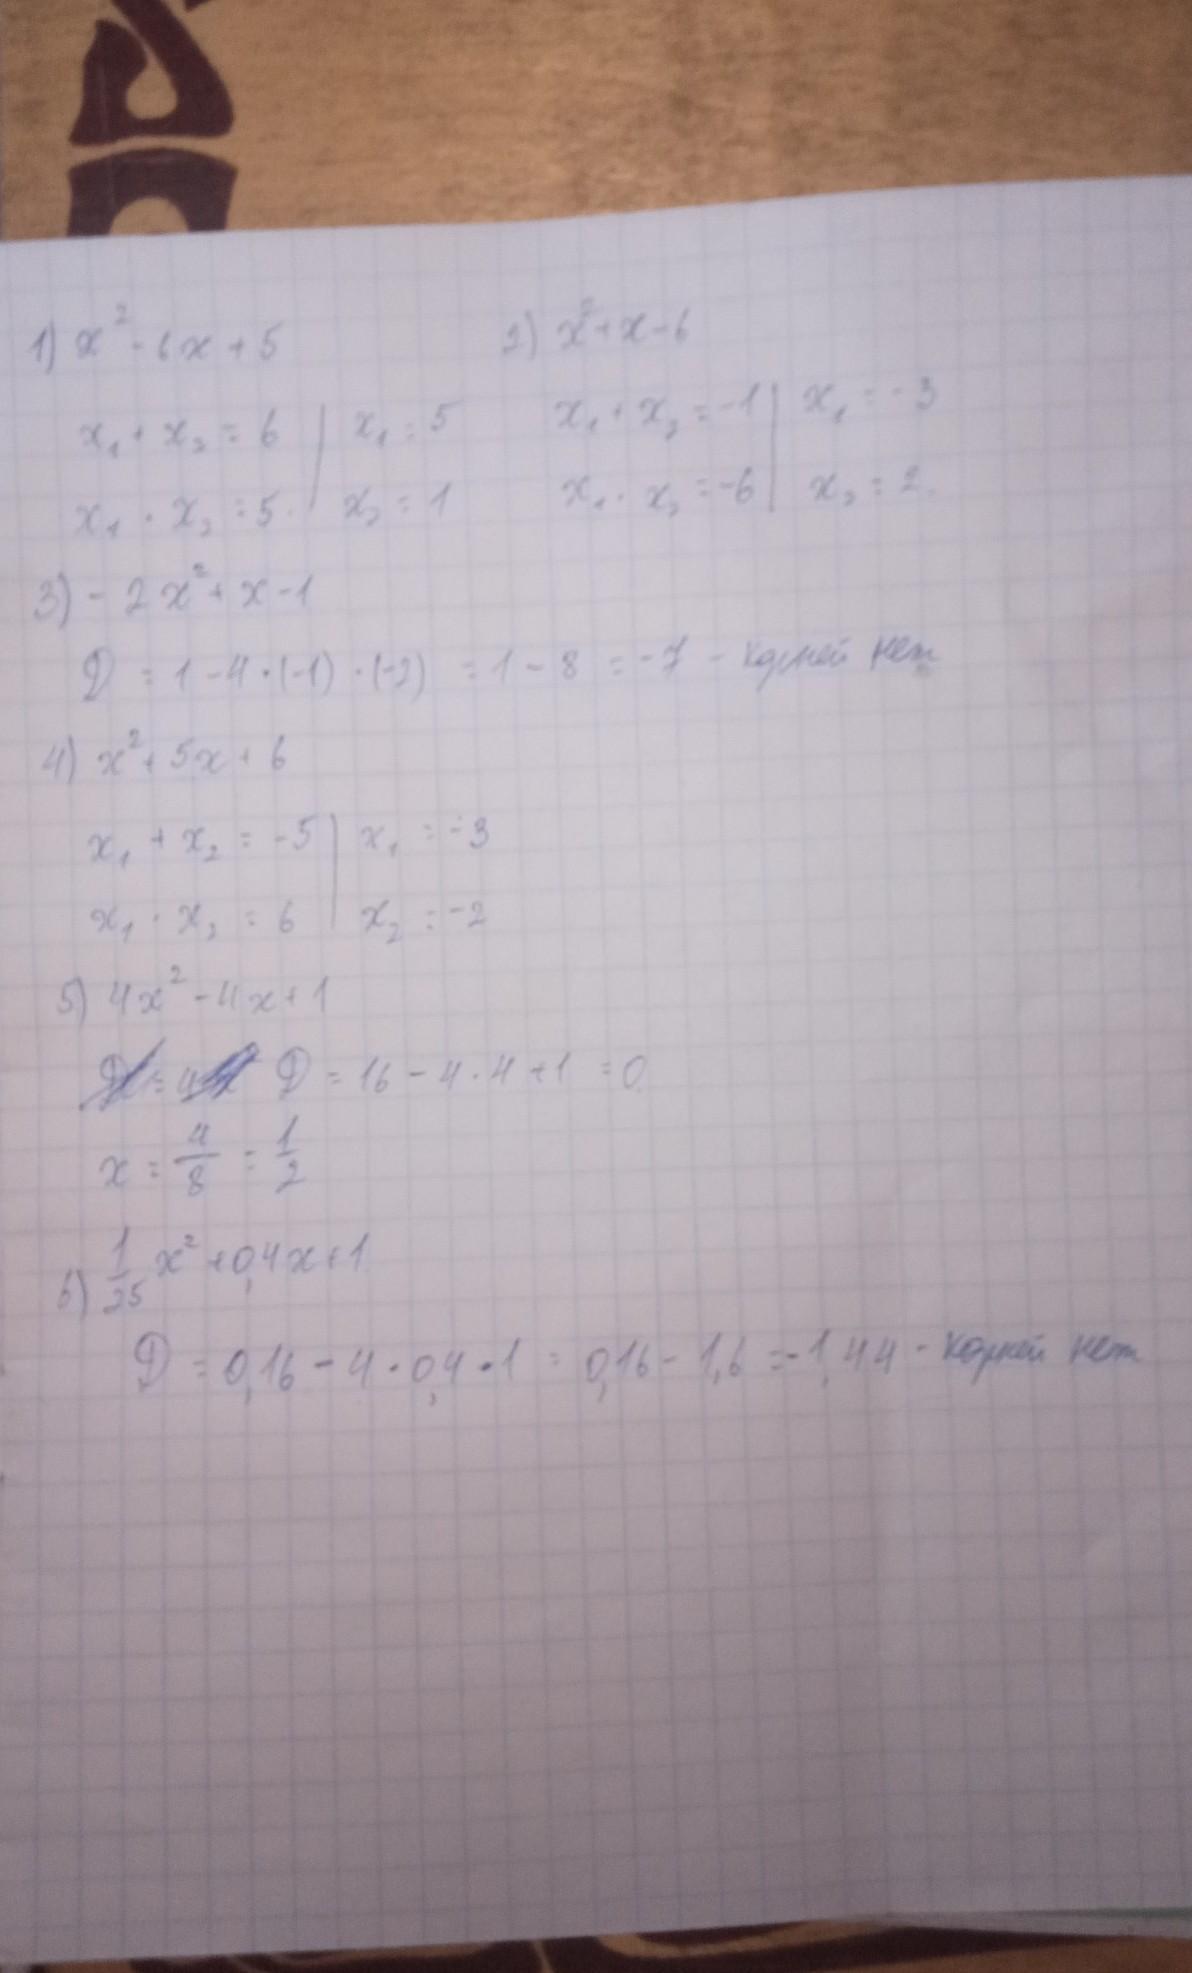 1) x² - 6x + 5
x₁ + x₂ = 6 | x₁ = 5
x₁ · x₂ = 5. | x₂ = 1
2) x² + x - 6
x₁ + x₂ = -1 | x₁ = -3
x₁ · x₂ = -6 | x₂ = 2.
3) - 2x² + x - 1
D = 1 - 4 · (-1) · (-2) = 1 - 8 = -7 - корней нет
4) x² + 5x + 6
x₁ + x₂ = -5 | x₁ = -3
x₁ · x₂ = 6 | x₂ = -2
5) 4x² - 4x + 1
D = 16 - 4 · 4 + 1 = 0
x = 4/8 = 1/2
6) 1/25 x² + 0,4x + 1
D = 0,16 - 4 · 0,4 · 1 = 0,16 - 1,6 = -1,44 - корней нет